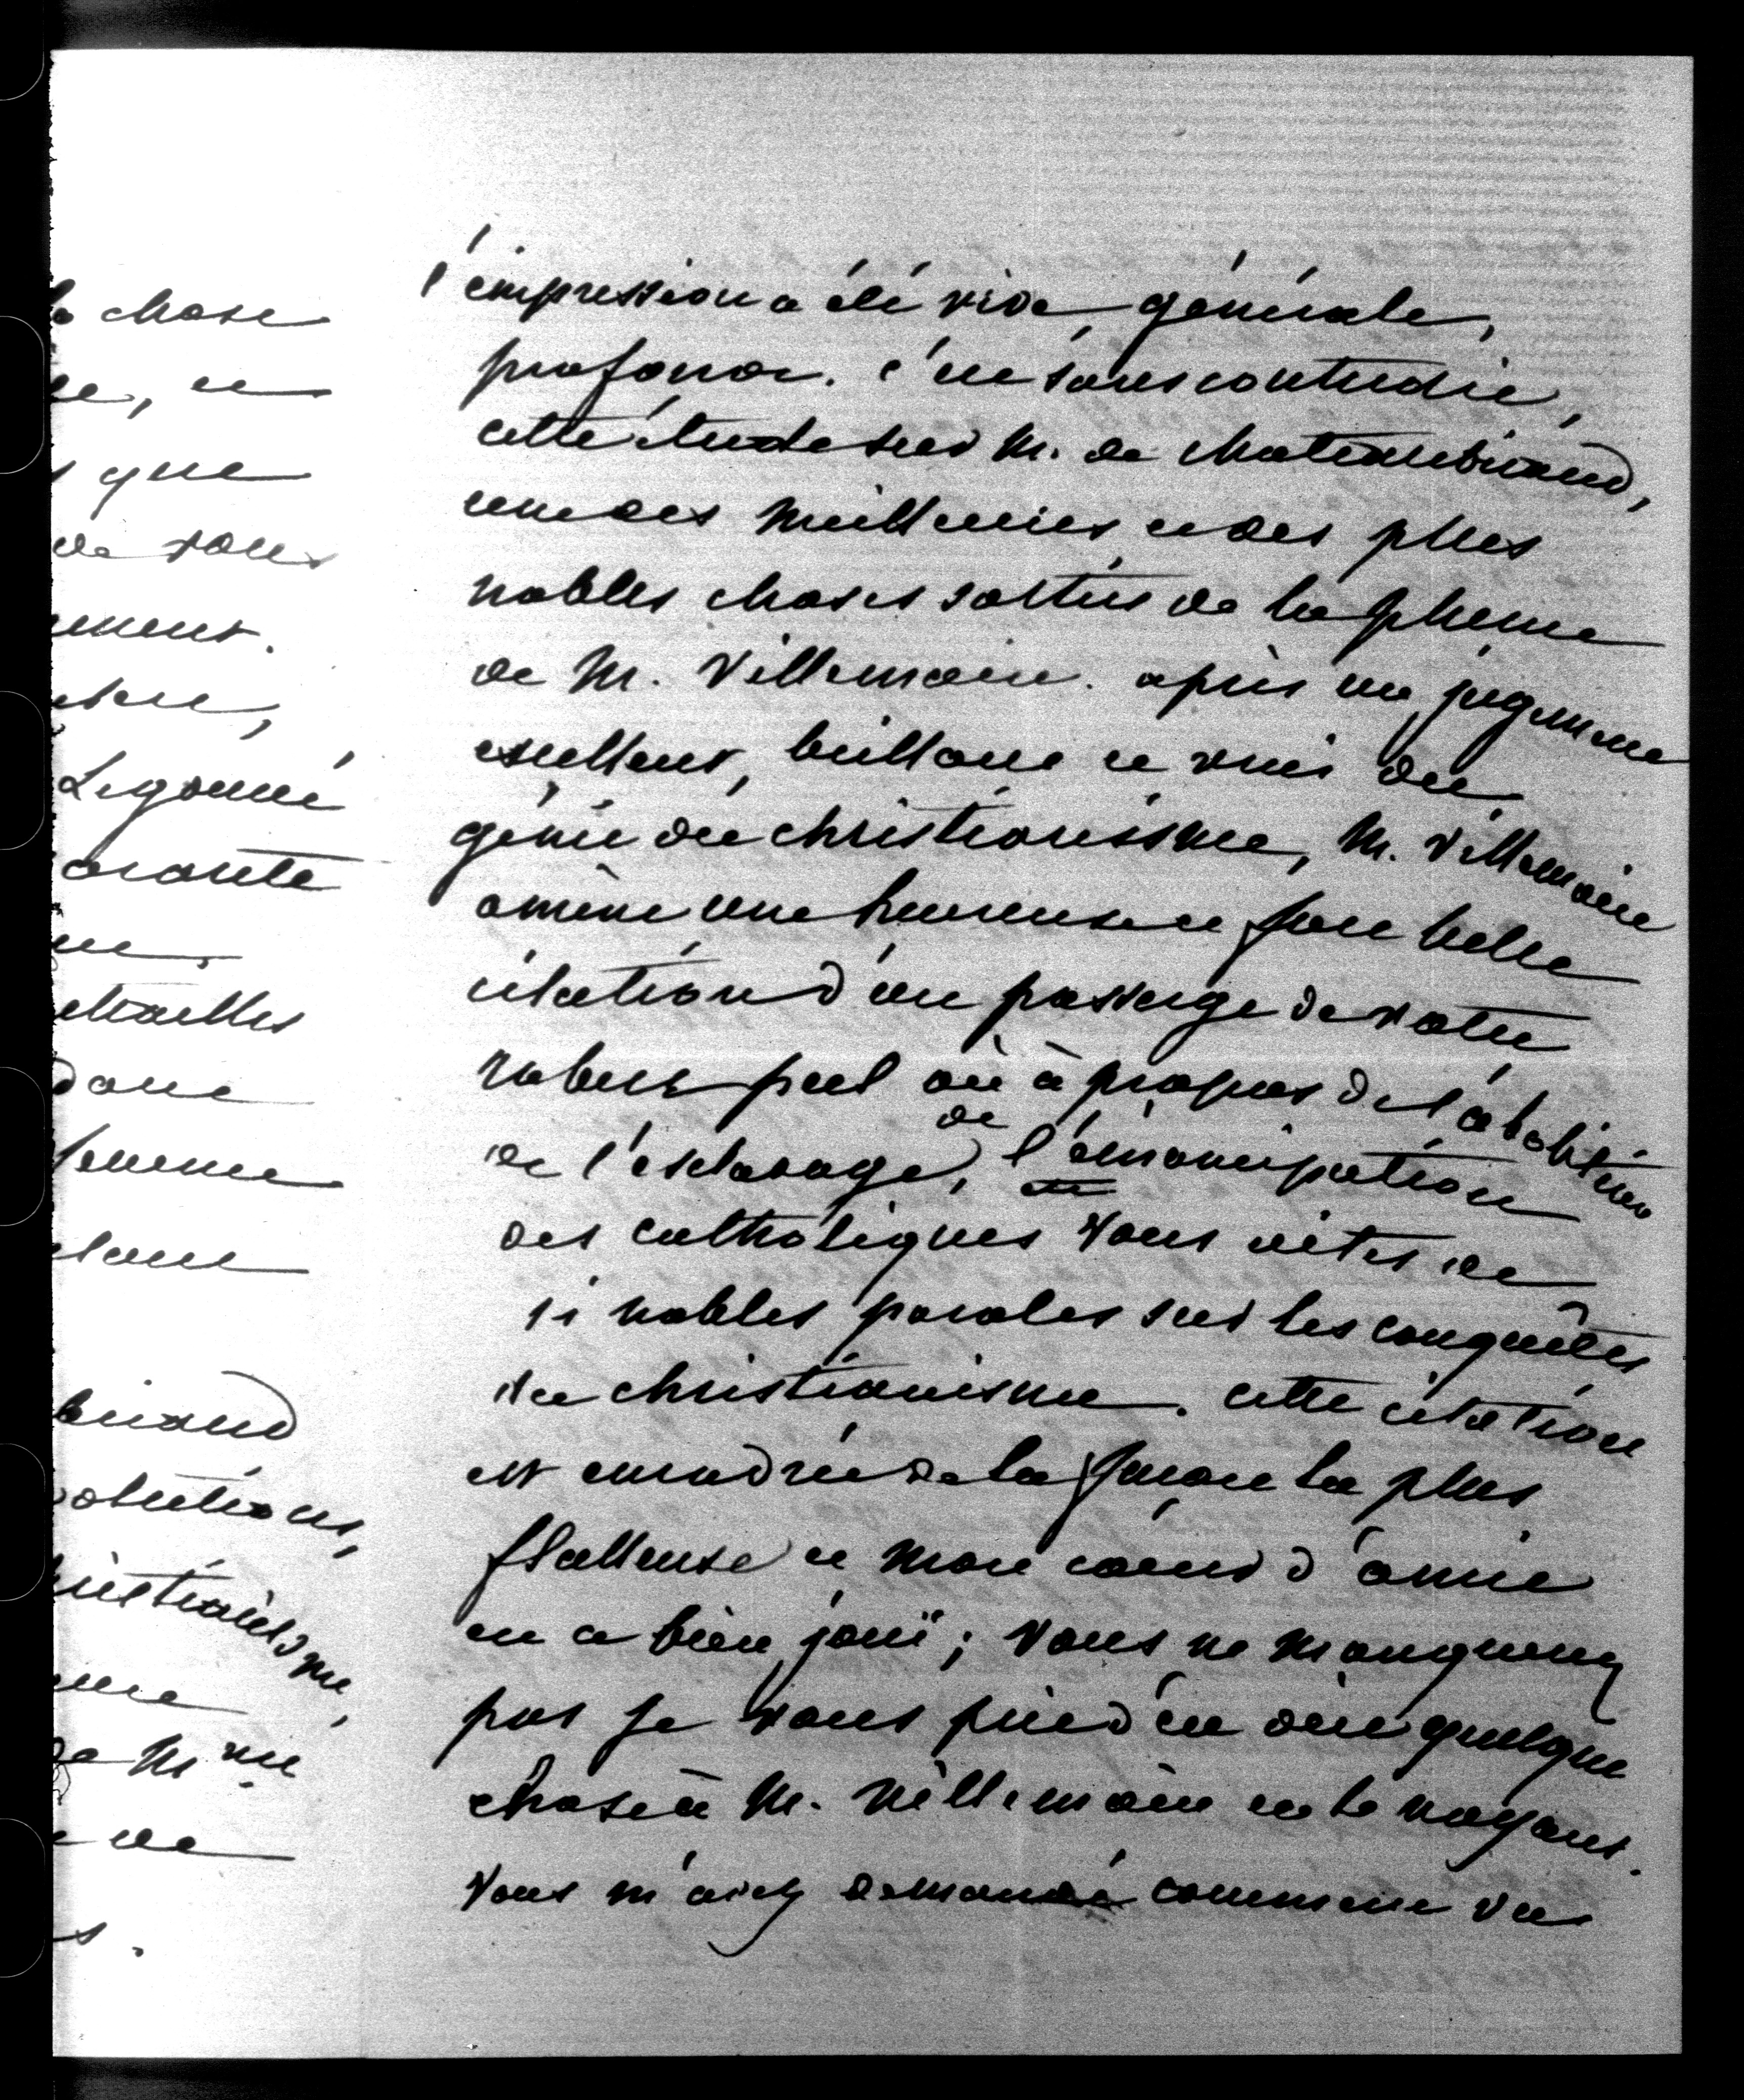 la chose
que
de vous
Legouvé
briand
christianisme,
de Mme
l'impression a été vive, générale,
profonde. c'est sans contredit,
cette étude sur M. de chateaubriand,
une des meilleures et des plus
nobles choses sorties de la plume
de M. Villemain. après un jugement
excellent, brillant et vrai du
génie du christianisme, M. Villemain
amène une heureuse et fort belle
citation d'un passage de votre
robert peel où à propos de l'abolition
de l'esclavage, de l'émancipation
des catholiques vous dites de
si nobles paroles sur les conquêtes
du christianisme. cette citation
est encadrée de la façon la plus
flatteuse et mon coeur d'amie
en a bien jouï; vous ne manquerez
pas je vous prie d'en dire quelque
chose à M. Villemain en le voyant.
vous m'aviez demandé comment va